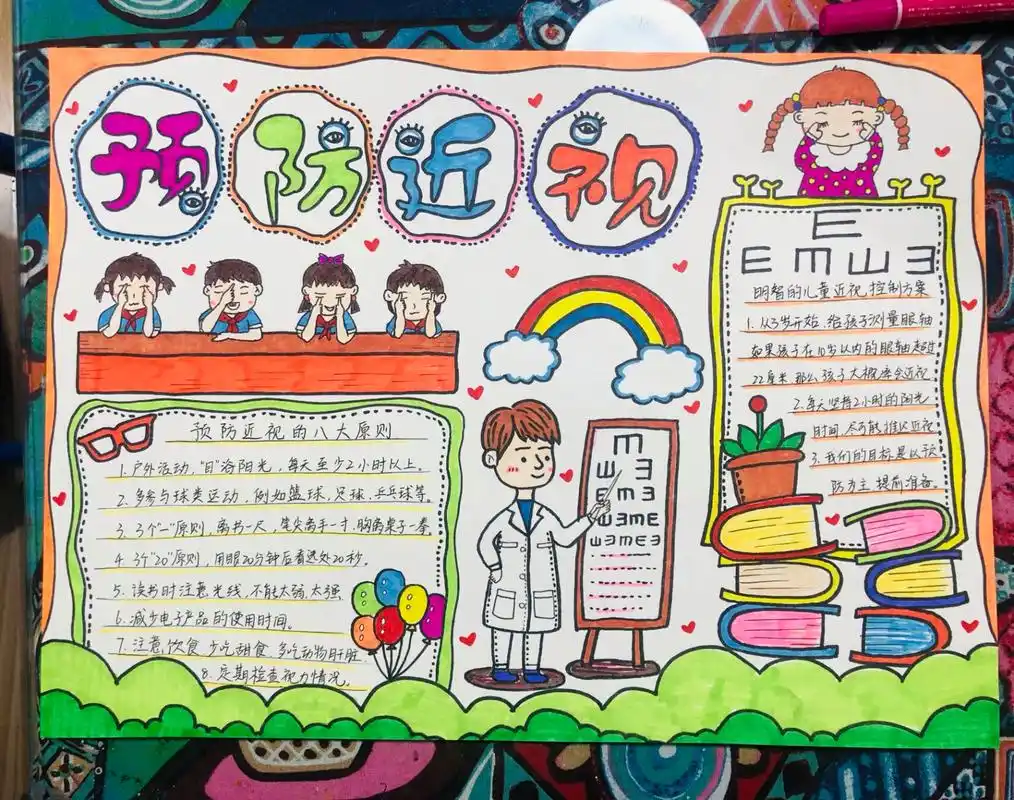 预防近视
预防近视的八大原则
1.户外活动,"目"浴阳光,每天至少2小时以上。
2.多参与球类运动,例如篮球,足球,乒乓球等。
3.3个"一"原则,离书一尺,笔尖离手一寸,胸离桌子一拳
4.3个"20"原则,用眼20分钟后看远处20秒。
5.读书时注意光线,不能太弱,太强
6.减少电子产品的使用时间。
7.注意饮食 少吃甜食.多吃动物肝脏.
8.定期检查视力情况。
E
E m ш Ǝ
明智的儿童近视控制方案
1.从3岁开始.给孩子测量眼轴
如果孩子在10岁以内的眼轴超过
22毫米 那么孩子大概率会近视
2.每天坚持2小时的阳光
时间.尽可能推迟近视
3.我们的目标是以预
防为主 提前准备.
m
ш Ǝ
E m Ǝ
ш Ǝ m E
ш Ǝ m E Ǝ